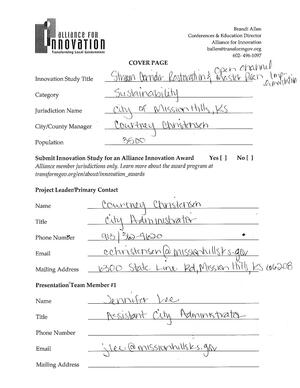 ALLIANCE FOR
INNOVATION
Transforming Local Government
Brandi Allen
Conferences & Education Director
Alliance for Innovation
ballen@transformgov.org
602-496-1097
COVER PAGE
Innovation Study Title Stream Corridor Restoration & Open Channel Master Plan Implementation
Category Sustainability
Jurisdiction Name City of Mission Hills, KS
City/County Manager Courtney Christensen
Population 3500
Submit Innovation Study for an Alliance Innovation Award Yes [ ] No [ ]
Alliance member jurisdictions only. Learn more about the award program at
transformgov.org/en/about/innovation_awards
Project Leader/Primary Contact
Name Courtney Christensen
Title City Administrator
Phone Number 913/362-9620
Email cchristensen@missionhillsks.gov
Mailing Address 6300 State Line Rd, Mission Hills, KS 66208
Presentation Team Member #1
Name Jennifer Lee
Title Assistant City Administrator
Phone Number
Email jlee@missionhillsks.gov
Mailing Address